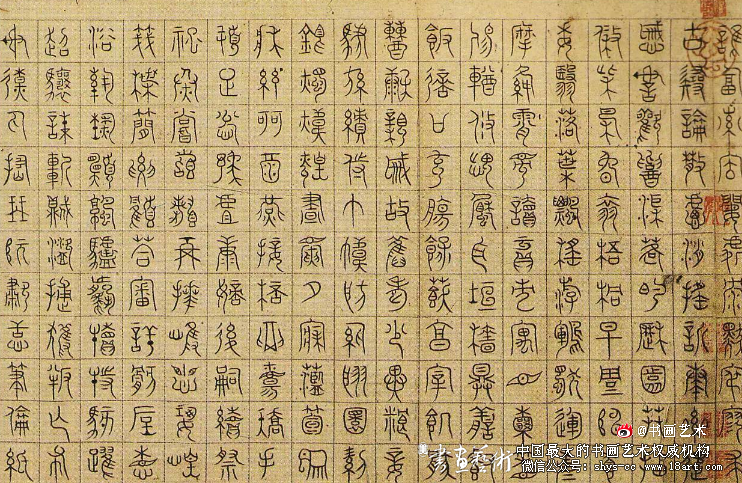 誰逼索居閒處沉默寂寥求
古尋論散慮逍遙欣奏累遣
慼謝歡招渠荷的歷園莽抽
條枇杷晚翠梧桐早凋陳根
委翳落葉飄颻遊鵾獨運凌
摩絳霄耽讀玩市寓目囊箱
易輶攸畏屬耳垣牆具膳餐
飯適口充腸飽飫烹宰飢厭
糟糠親戚故舊老少異糧妾
御績紡侍巾帷房紈扇圓潔
銀燭煒煌晝眠夕寐藍筍象
床弦歌酒宴接杯舉觴矯手
頓足悅豫且康嫡後嗣續祭
祀烝嘗稽顙再拜悚懼恐惶
牋牒簡要顧答審詳骸垢想
浴執熱願涼驢騾犢特駭躍
超驤誅斬賊盜捕獲叛亡布
射僚丸嵇琴阮嘯恬筆倫紙
@书画艺术
書画藝術
中国最大的书画艺术权威机构
微信公众号：shys-cc www.18art.com